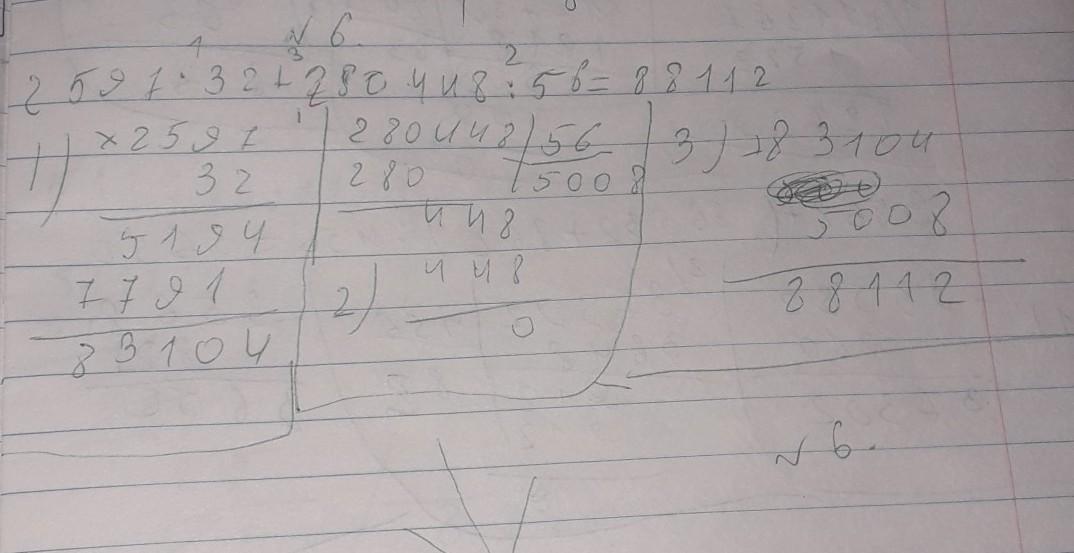 № 6.
1 3 2
2597 · 32 + 280448 : 56 = 88112
1) × 2597
32
5194
7791
83104
2) 280448 | 56
280 | 5008
448
448
0
3) + 83104
5008
88112
№ 6.